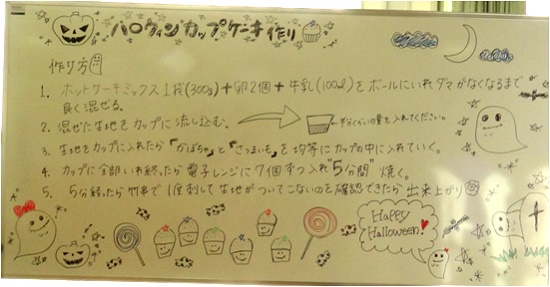 ハロウィンカップケーキ作り
作り方
1. ホットケーキミックス1袋(300g)+卵2個+牛乳(100ml)をボールにいれダマがなくなるまで
良く混ぜる。
2. 混ぜた生地をカップに流し込む。
←半分くらいの量を入れてください。
3. 生地をカップに入れたら「かぼちゃ」と「さつまいも」を均等にカップの中に入れていく。
4. カップに全部いれ終ったら電子レンジに7個ずつ入れ"5分間"焼く。
5. 5分経ったら竹串で1度刺して生地がついてこないのを確認できたら出来上がり
Happy
Halloween!